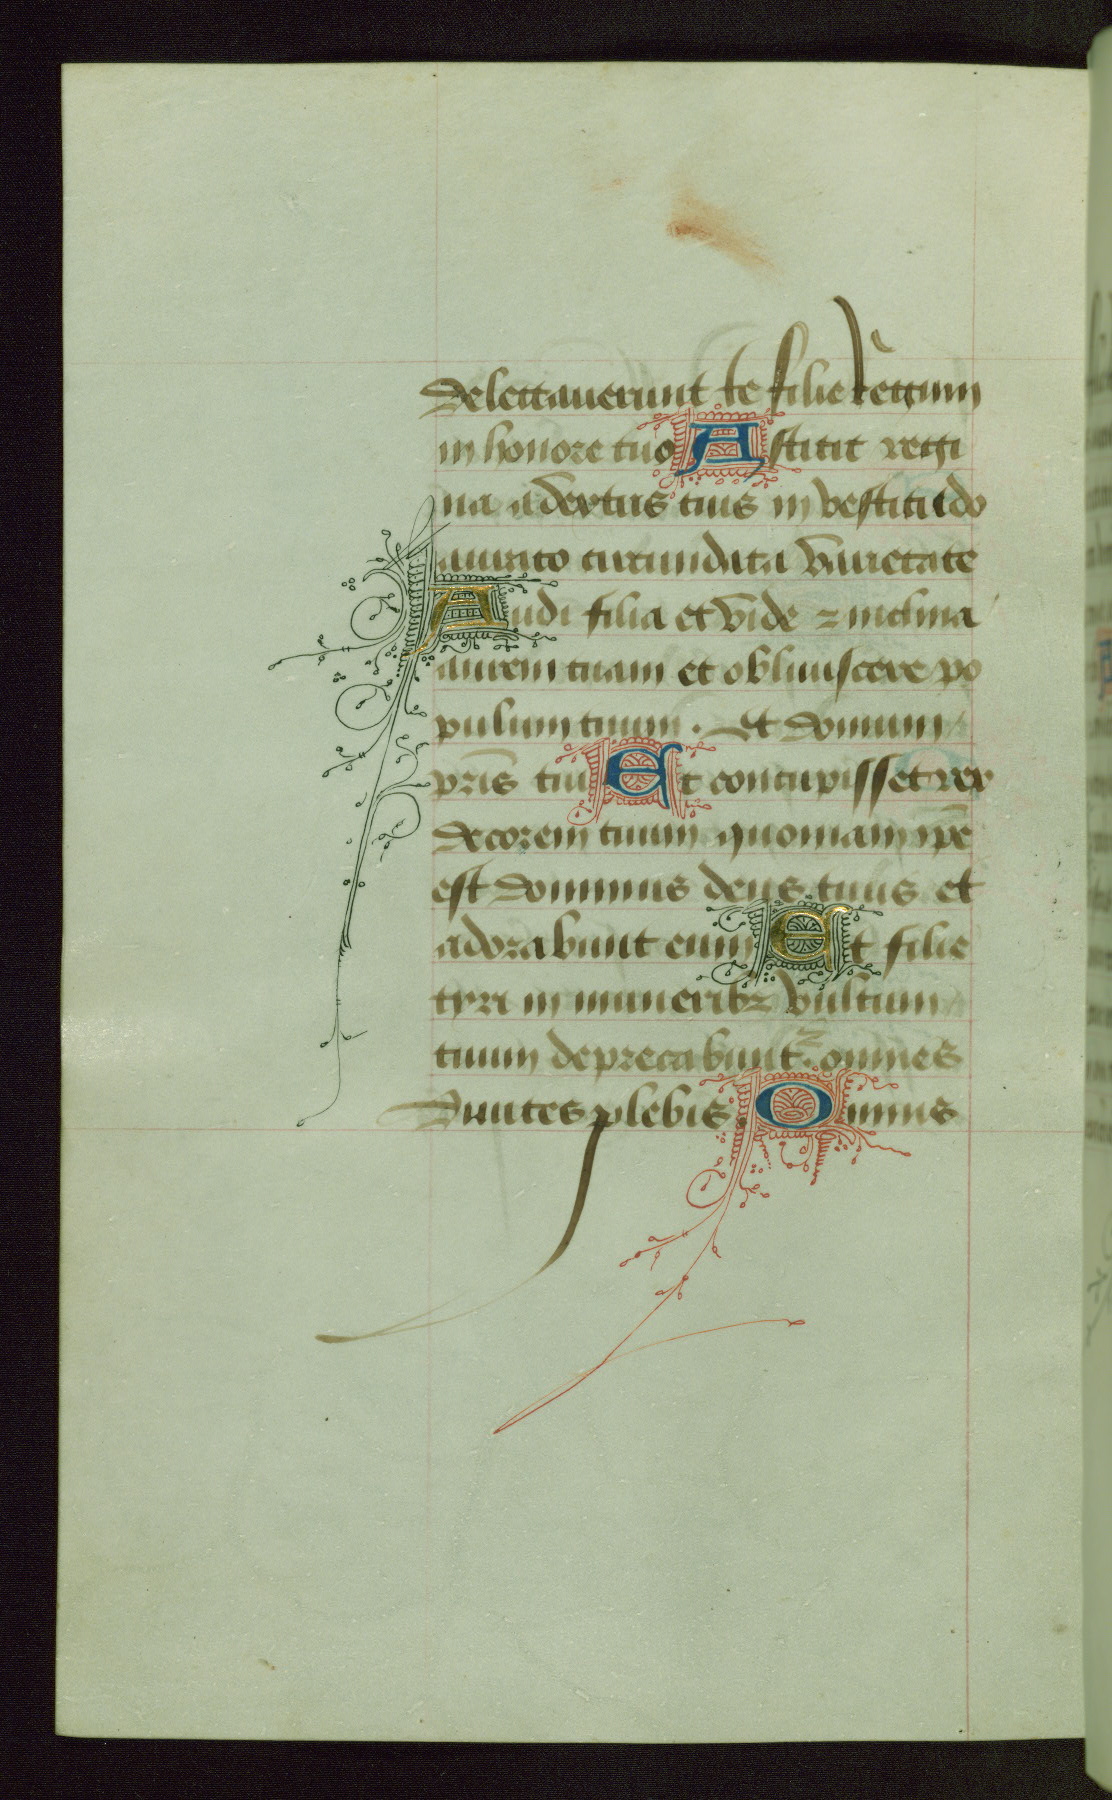 delectauerunt te filie regum
in honore tuo Astitit regi
na a dextris tuis in vestitu do
aurato circumdata varietate
Audi filia et vide ⁊ inclina
aurem tuam et obliuiscere po
pulum tuum . Et domum
pris̄ tui Et concupisset rex
decorem tuum quoniam ip̄e
est dominus deus tuus et
adorabunt eum Et filie
tyri in muneribꝫ vultum
tuum deprecabunt᷑ omnes
diuites plebis Omnis